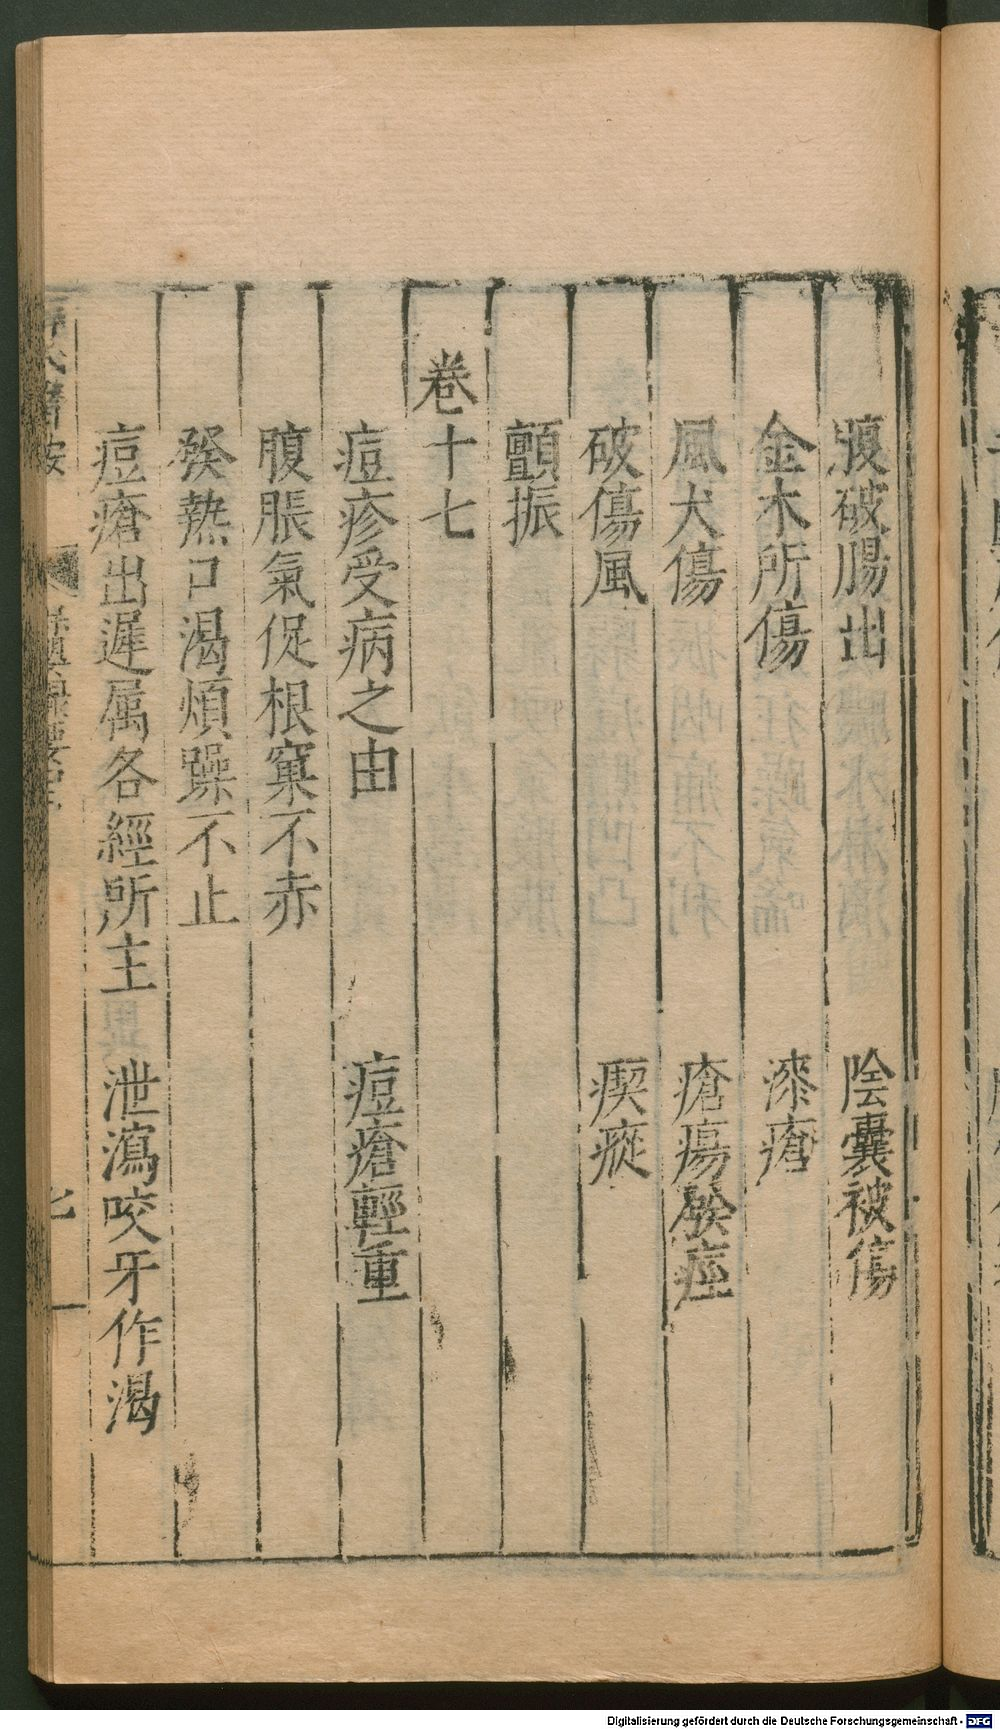 腹破腸出　陰囊被傷
金木所傷　漆瘡
風犬傷　瘡瘍
破傷風　瘈瘲
顫振
卷十七
痘疹受病之由　痘瘡輕重
腹脹氣促根窠不赤
發熱口渴煩躁不止
痘瘡出遲属各經所主　泄瀉咬牙作渴
Digitalisierung gefördert durch die Deutsche Forschungsgemeinschaft - DFG